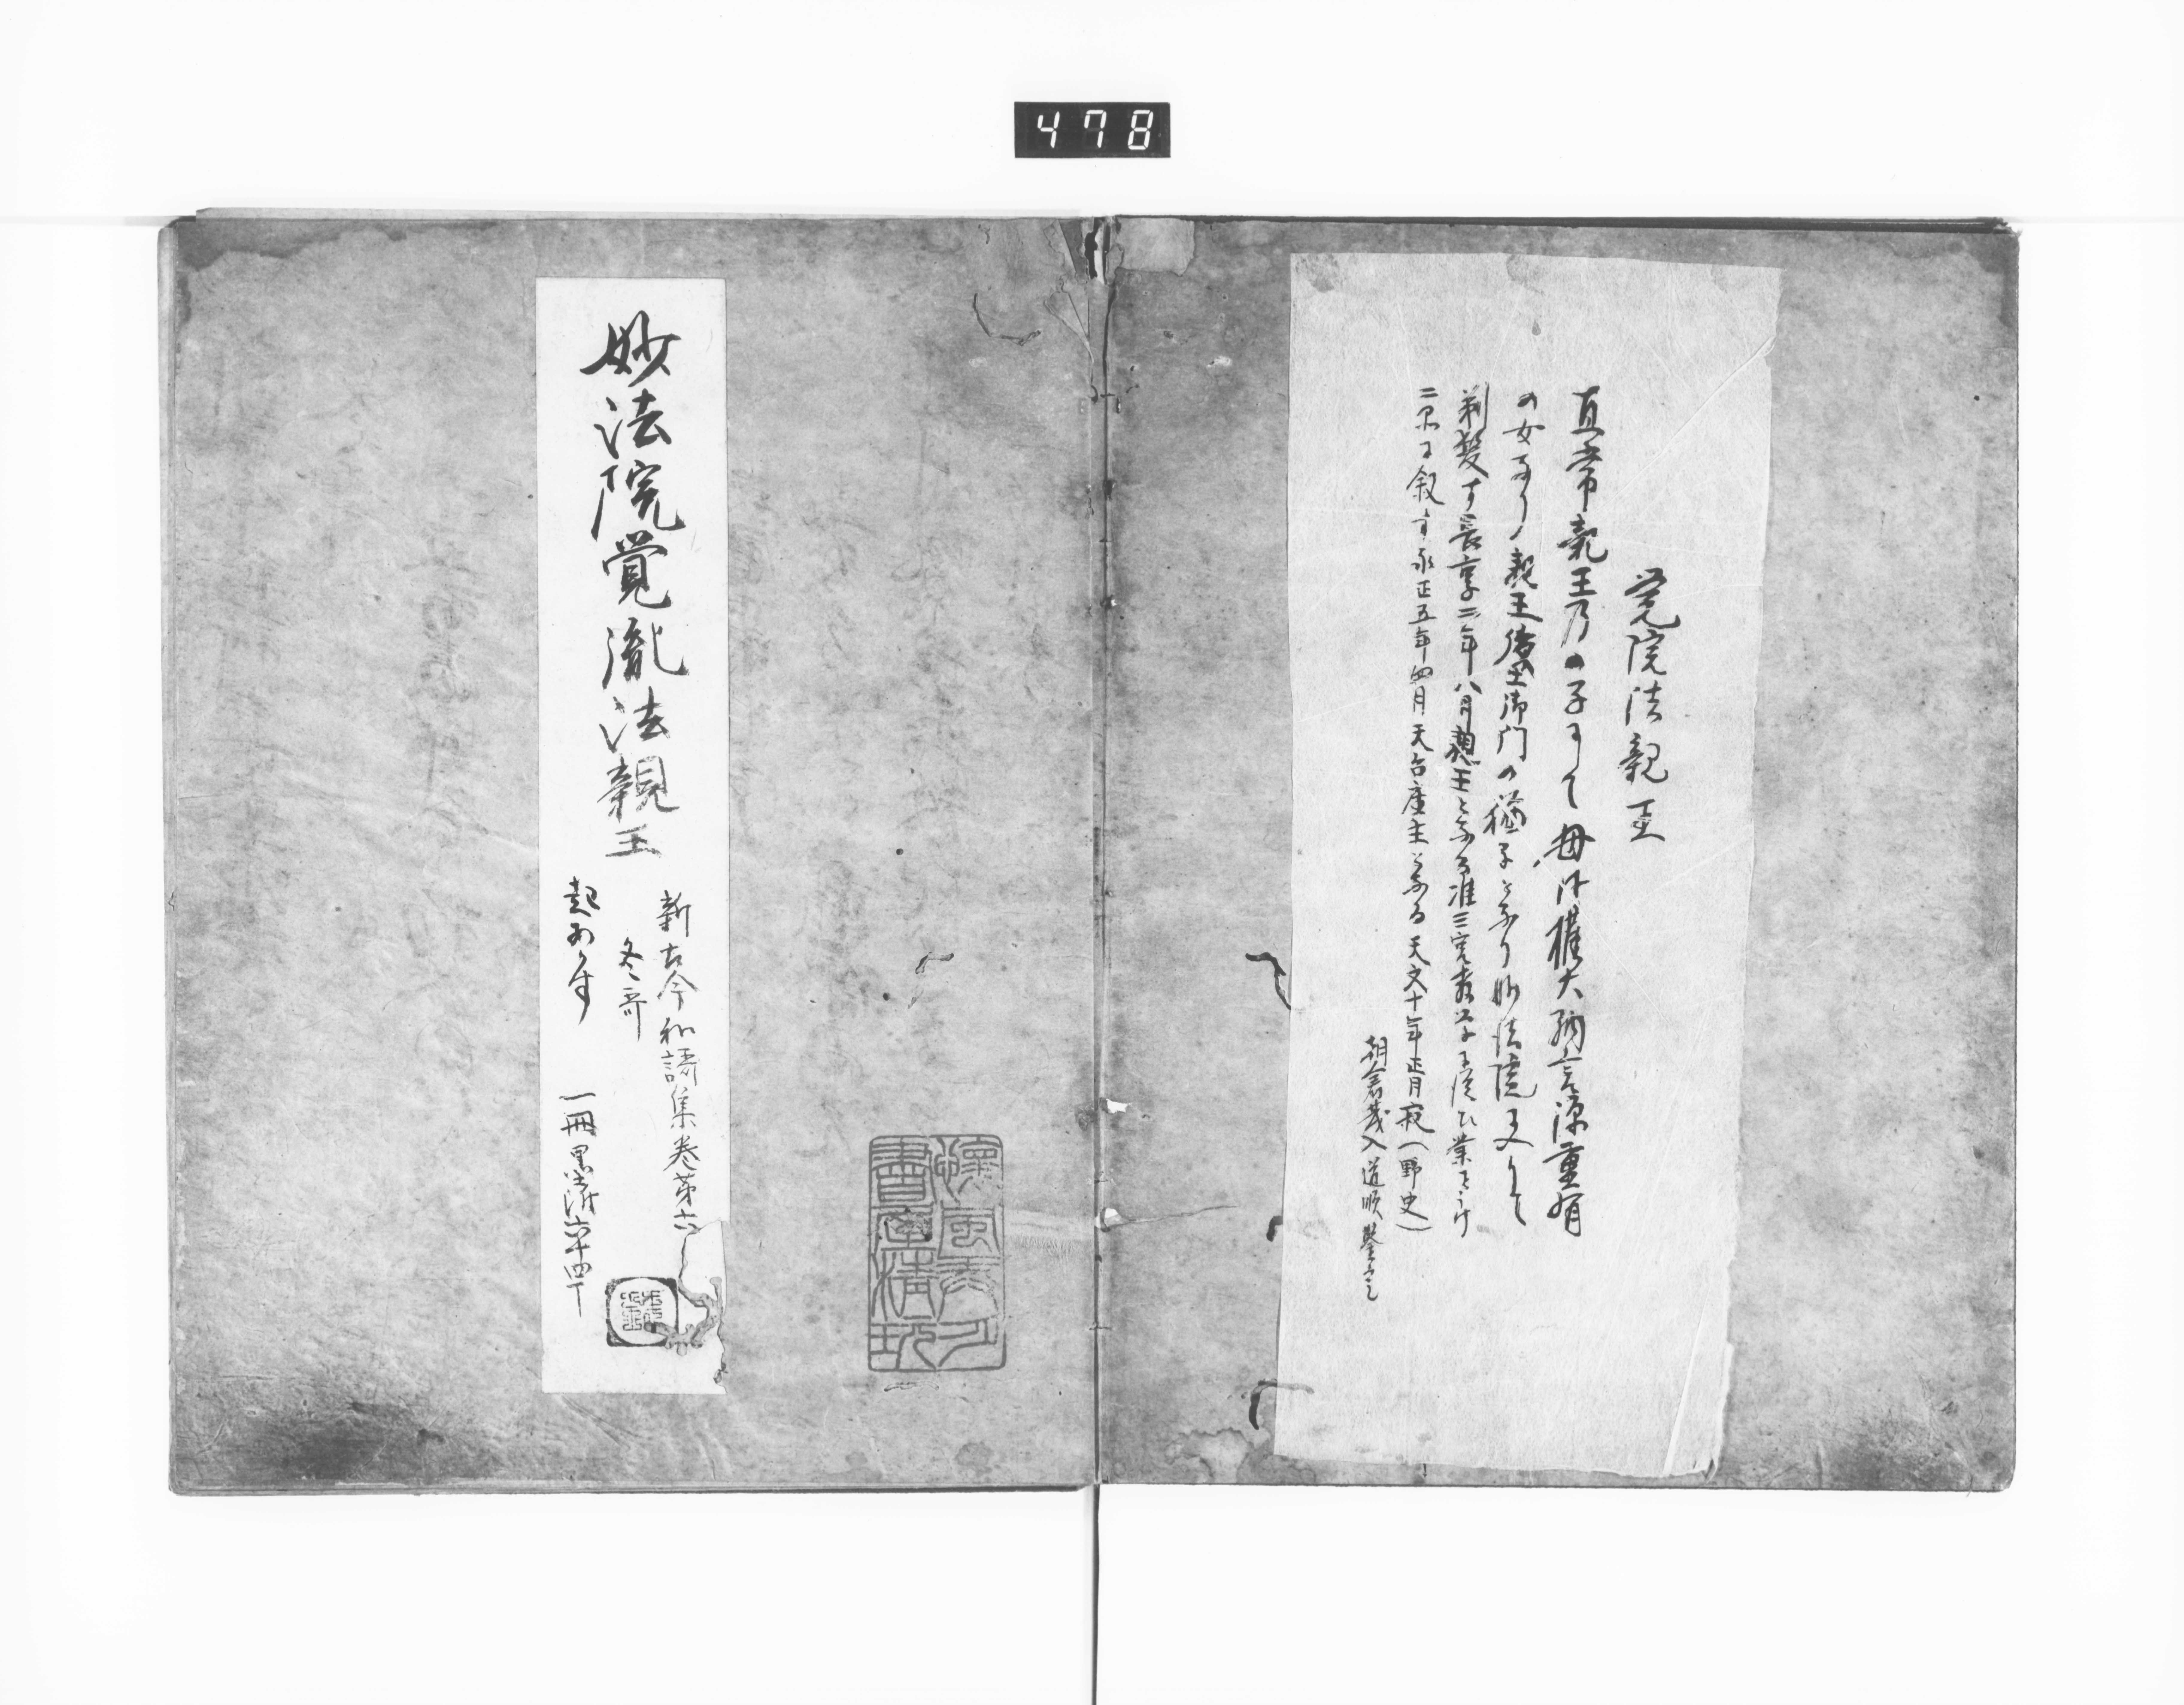 478
覚院法親王
貞常親王乃の子にて母は権大納言源重有
の女なり親王後土御門の猶子となり妙法院に入りて
剃髪す長享二年八月親王となる准三宮
二品に叙す永正五年四月天台座主となる天文十年正月寂(野史)
朝倉茂入道順
妙法院覚胤法親王
新古今和謌集巻第六
冬哥
起おくす
一冊墨附六十四丁